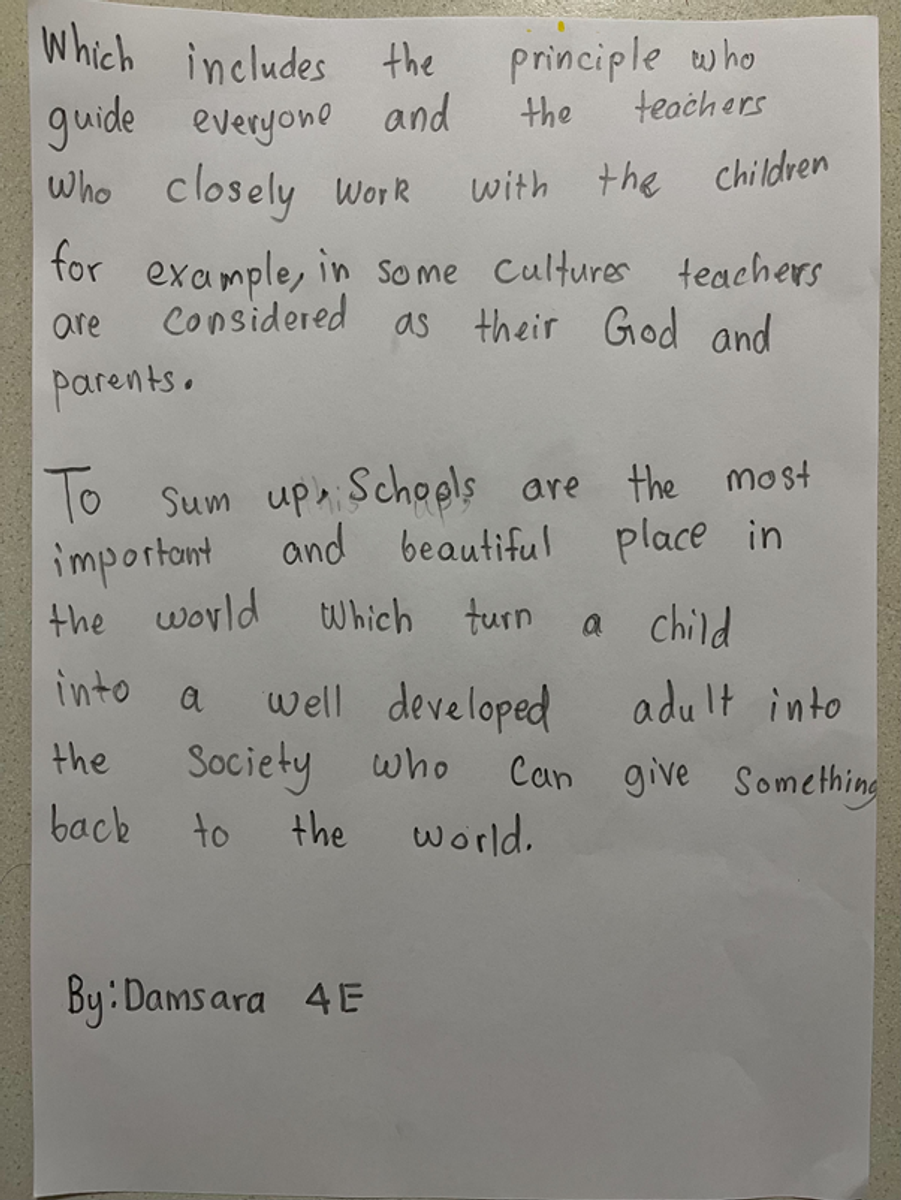 Which includes the principle who
guide everyone and the teachers
who closely work with the children
for example, in some cultures teachers
are considered as their God and
parents.
To sum up, Schools are the most
important and beautiful place in
the world which turn a child
into a well developed adult into
the society who can give something
back to the world.
By: Damsara 4E